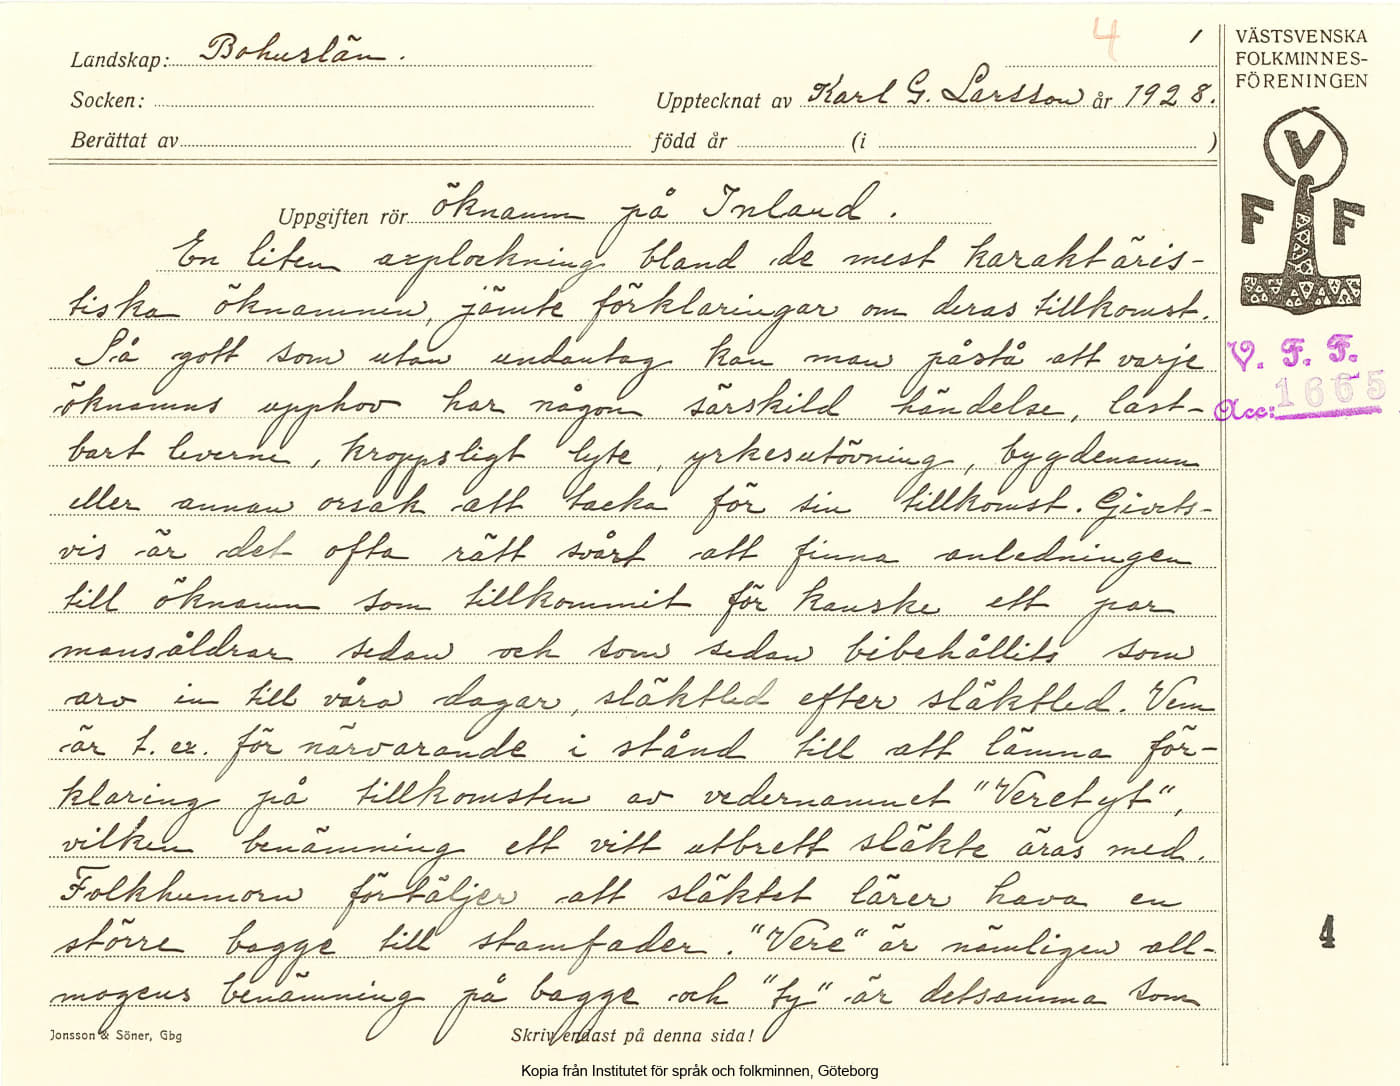 4
1
Landskap: Bohuslän.
Socken:
Upptecknat av Karl G. Larsson år 1928.
Berättat av
född år (i )
Uppgiften rör öknamn på Inland.
En liten axplockning bland de mest karaktäris-
tiska öknamnen, jämte förklaringar om deras tillkomst.
Så gott som utan undantag kan man påstå att varje
öknamns upphov har någon särskild händelse, last-
bart leverne, kroppsligt lyte, yrkesutövning, bygdenamn
eller annan orsak att tacka för sin tillkomst. Givets-
vis är det ofta rätt svårt att finna anledningen
till öknamn som tillkommit för kanske ett par
mansåldrar sedan och som sedan bibehållits som
arv in till våra dagar, släktled efter släktled. Vem
är t. ex. för närvarande i stånd till att lämna för-
klaring på tillkomsten av vedernamnet "Veretyt",
vilken benämning ett vitt utbrett släkte äras med.
Folkhumorn förtäljer att släktet lärer hava en
större bagge till stamfader. "Vere" är nämligen all-
mogens benämning på bagge och "ty" är detsamma som
Jonsson & Söner, Gbg
Skriv endast på denna sida!
VÄSTSVENSKA
FOLKMINNES-
FÖRENINGEN
V
F F
V. F. F.
Acc: 1665
4
Kopia från Institutet för språk och folkminnen, Göteborg